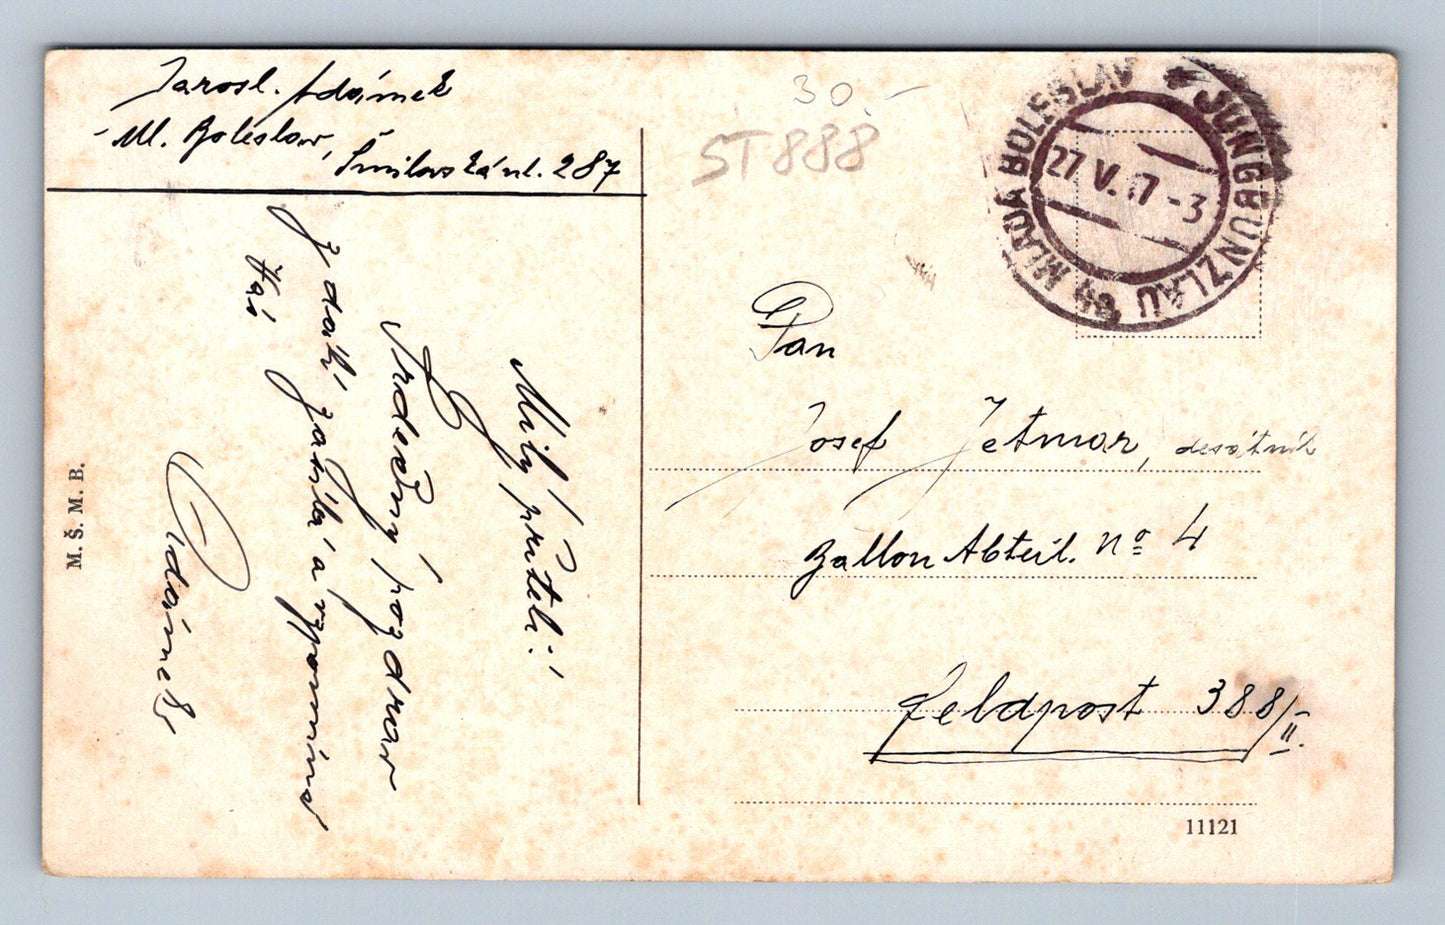 Jarosl. Adámek
Ml. Boleslav,
Šmilovská ul. 287
30.-
ST888
MLADÁ BOLESLAV
JUNGBUNZLAU
27 V. 17 - 3
Milý příteli!
Srdečný pozdrav
z dáli zasílá a vzpomíná
Adámek
M. Š. M. B.
Pan
Josef Jetmar, desátník
Ballon Abteil. No 4
Feldpost 388/II.
11121